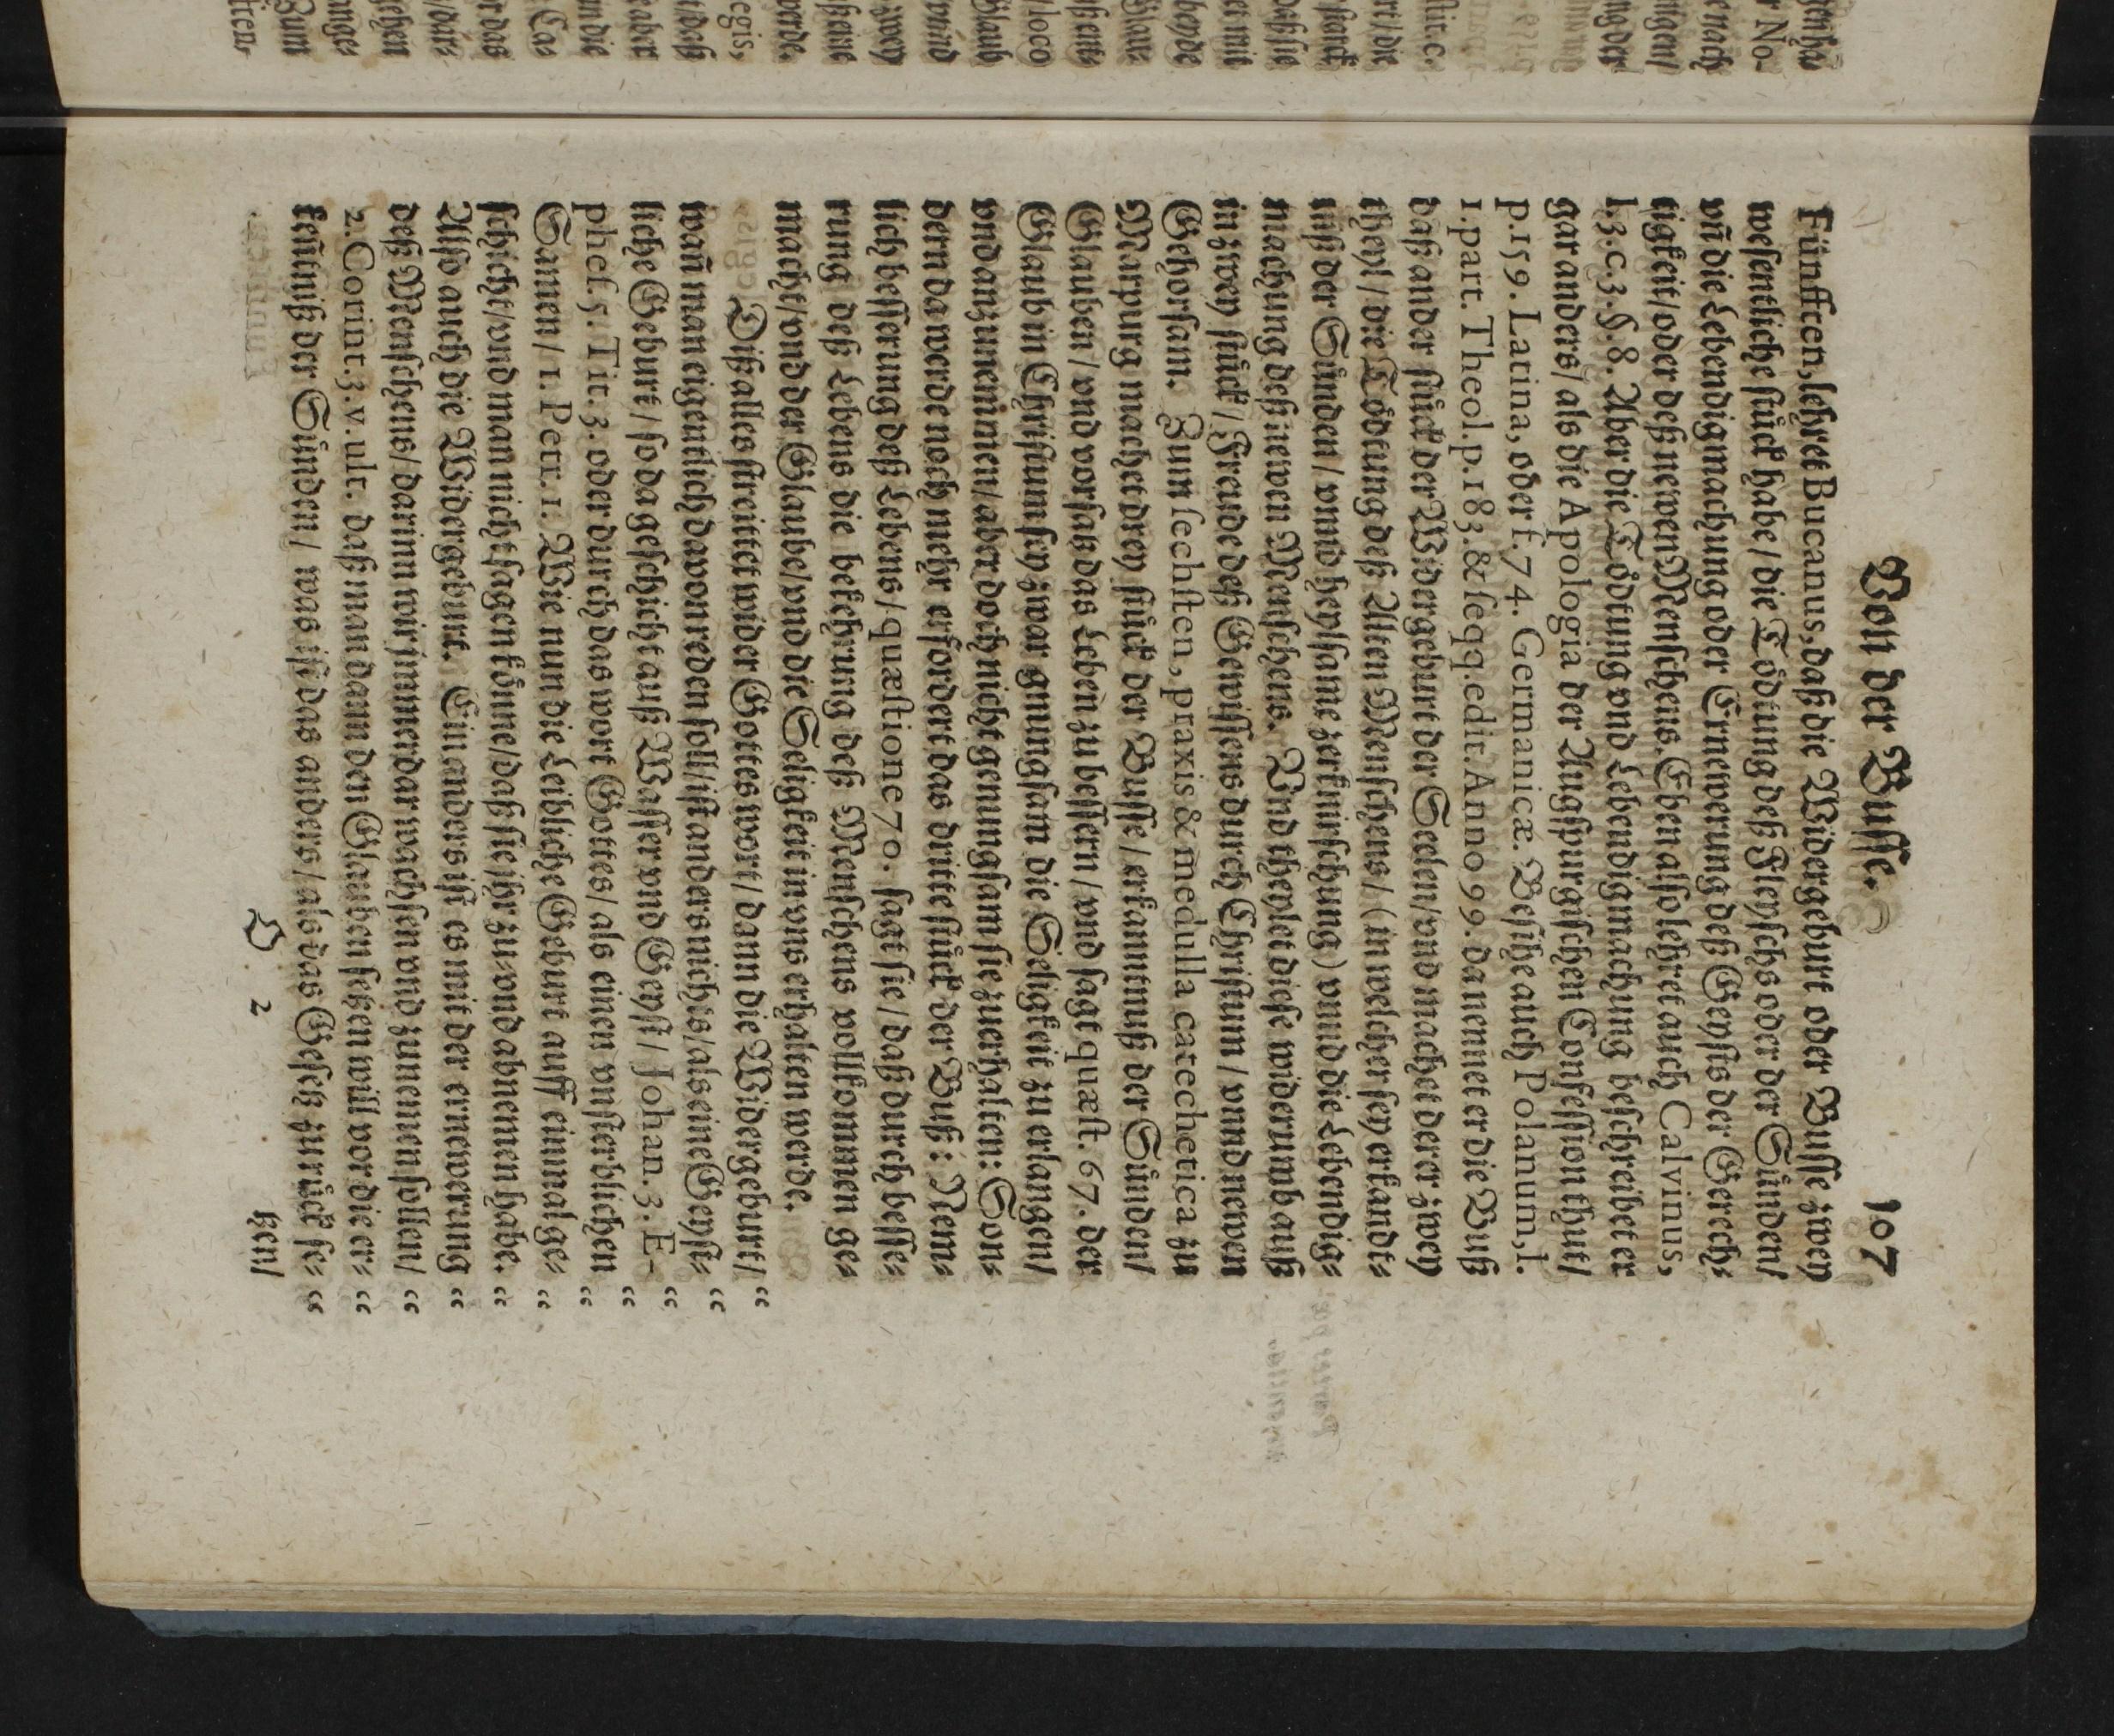 Von der Buſſe. 107
Fünfften, lehret Bucanus, daß die Widergeburt oder Buſſe zwey
weſentliche ſtück habe / die Tödtung deß Fleyſchs oder der Sünden /
vñ die Lebendigmachung oder Ernewerung deß Geyſts der Gerech⸗
tigkeit / oder deß newen Menſchens. Eben alſo lehret auch Calvinus,
l. 3. c. 3. §. 8. Aber die Tödtung vnd Lebendigmachung beſchreibet er
gar anders / als die Apologia der Augſpurgiſchen Confeſſion thut /
p. 159. Latina, oder f. 74. Germanicæ. Beſihe auch Polanum, l.
1. part. Theol. p. 183. & ſeqq. edit. Anno 99. da nennet er die Buß
daß ander ſtück der Widergeburt der Seelen / vnd machet derer zwey
theyl / die Tödtung deß Alten Menſchens / (in welcher ſey erkandt⸗
nüß der Sünden / vnnd heylſame zerknirſchung) vnnd die Lebendig⸗
machung deß newen Menſchens. Vnd theylet dieſe widerumb auß
in zwey ſtück / Freude deß Gewiſſens durch Chriſtum / vnnd newen
Gehorſam. Zum ſechſten, praxis & medulla catechetica zu
Marpurg machet drey ſtück der Buſſe / erkanntnuß der Sünden /
Glauben / vnd vorſatz das Leben zu beſſern / vnd ſagt quæſt. 67. der
Glaub in Chriſtum ſey zwar gnungſam die Seligkeit zu erlangen /
vnd anzunemmen / aber doch nicht genungſam ſie zuerhalten: Son⸗
dern da werde noch mehr erfordert das dritte ſtück der Buß: Nem⸗
lich beſſerung deß Lebens / quæſtione 70. ſagt ſie / daß durch beſſe⸗
rung deß Lebens die bekehrung deß Menſchens vollkommen ge⸗
macht / vnd der Glaube / vnd die Seligkeit in vns erhalten werde.
Diß alles ſtreittet wider Gottes wort / dann die Widergeburt / “
wañ man eigentlich davon reden ſoll / iſt anders nichts / als eine Geyſt⸗ “
liche Geburt / ſo da geſchicht auß Waſſer vnd Geyſt / Johan. 3. E- “
pheſ. 5. Tit. 3. oder durch das wort Gottes / als einen vnſterblichen “
Samen / 1. Petr. 1. Wie nun die Leibliche Geburt auff einmal ge⸗ “
ſchicht / vnd man nicht ſagen könne / daß ſie ihr zu⸗vnd abnemen habe. “
Alſo auch die Widergeburt. Ein anders iſt es mit der ernewerung “
deß Menſchens / darinn wir jmmerdar wachſen vnd zunemen ſollen / “
2. Corint. 3. v. ult. daß man dann den Glauben ſetzen will vor die er⸗ “
keñtniß der Sünden / was iſt das anders / als das Geſetz zurück ſe⸗ “
O 2 tzen /